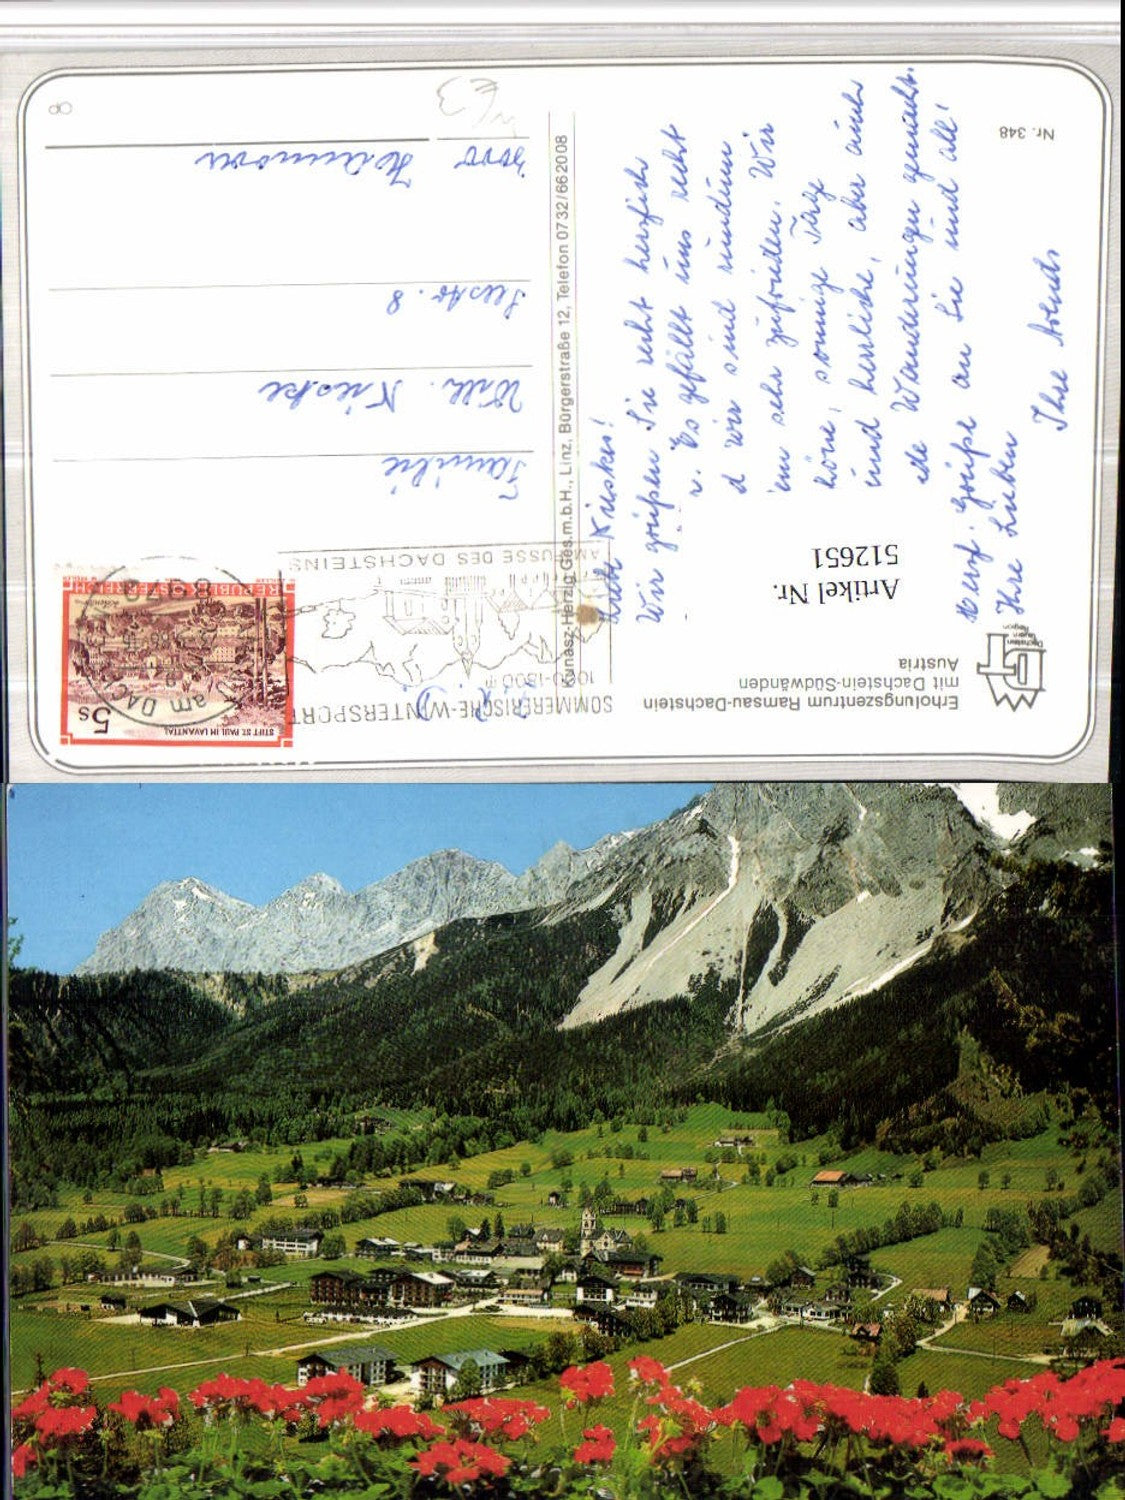 Erholungszentrum Ramsau-Dachstein
mit Dachstein-Südwänden
Austria
Artikel Nr.
512651
Nr. 348
Liebe Kieskes!
Wir grüßen Sie recht herzlich
Es gefällt uns recht
d wir sind rundum
sehr zufrieden. Wir
sonnige Tage
und herrliche, aber auch
Wanderungen gemacht.
Herzl. Grüße an Sie und all'
Ihre Lieben
Ihre Arends
Kunasz-Herzig Ges.m.b.H., Linz, Bürgerstraße 12, Telefon 0732/662008
SOMMERFRISCHE-WINTERSPORT
AM FUSSE DES DACHSTEINS
am DAC
8972
STIFT ST. PAUL IM LAVANTTAL
5s
REPUBLIK ÖSTERREICH
Familie
Willi. Kieske
Seestr. 8
3000 Hannover
€3